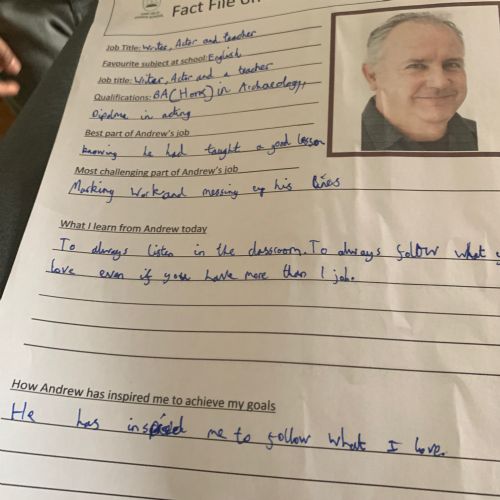 Fact File on
Job Title: Writer, Actor and teacher
Favourite subject at school: English
Job title: Writer, Actor and a teacher
Qualifications: BA (Hons) in Archaeology,
Diplma in acting
Best part of Andrew's job
knowing he had taught a good lesson
Most challenging part of Andrew's job
Marking work and messing up his lines
What I learn from Andrew today
To always listen in the classroom. To always follow what
love even if you have more than 1 job.
How Andrew has inspired me to achieve my goals
He has inspired me to follow what I love.